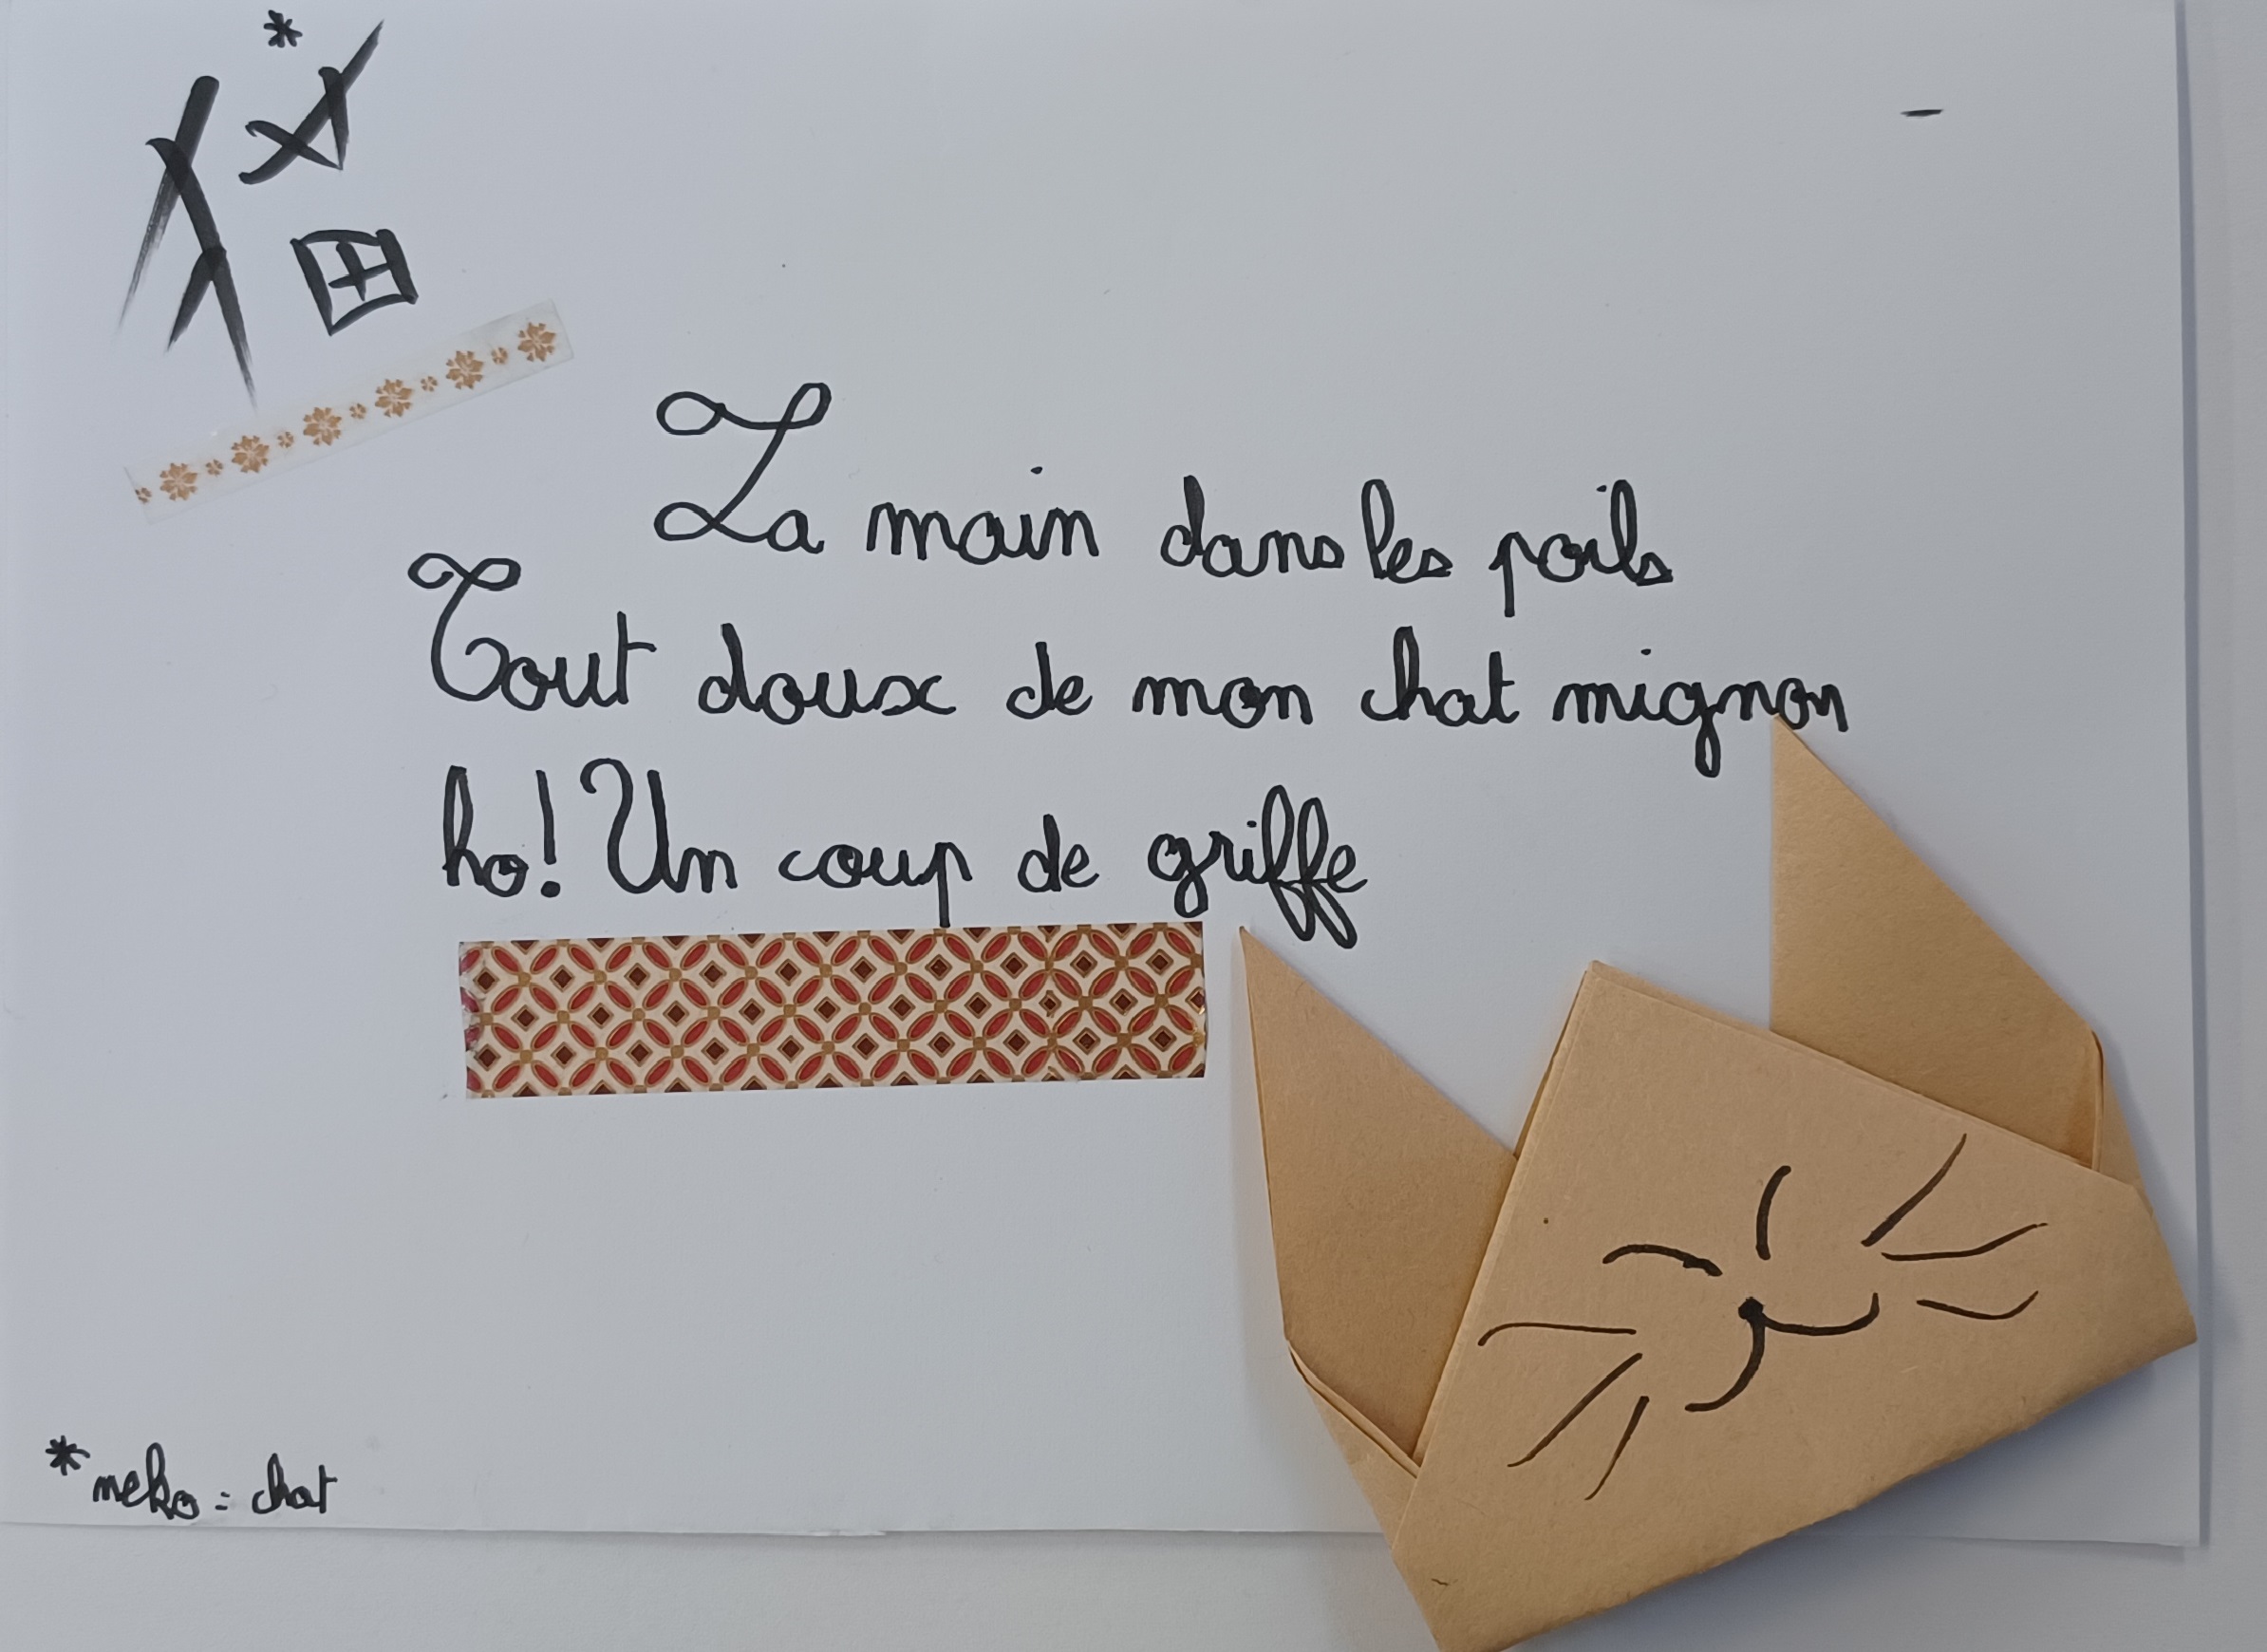 *
猫
La main dans les poils
Tout doux de mon chat mignon
ho! Un coup de griffe
*neko = chat